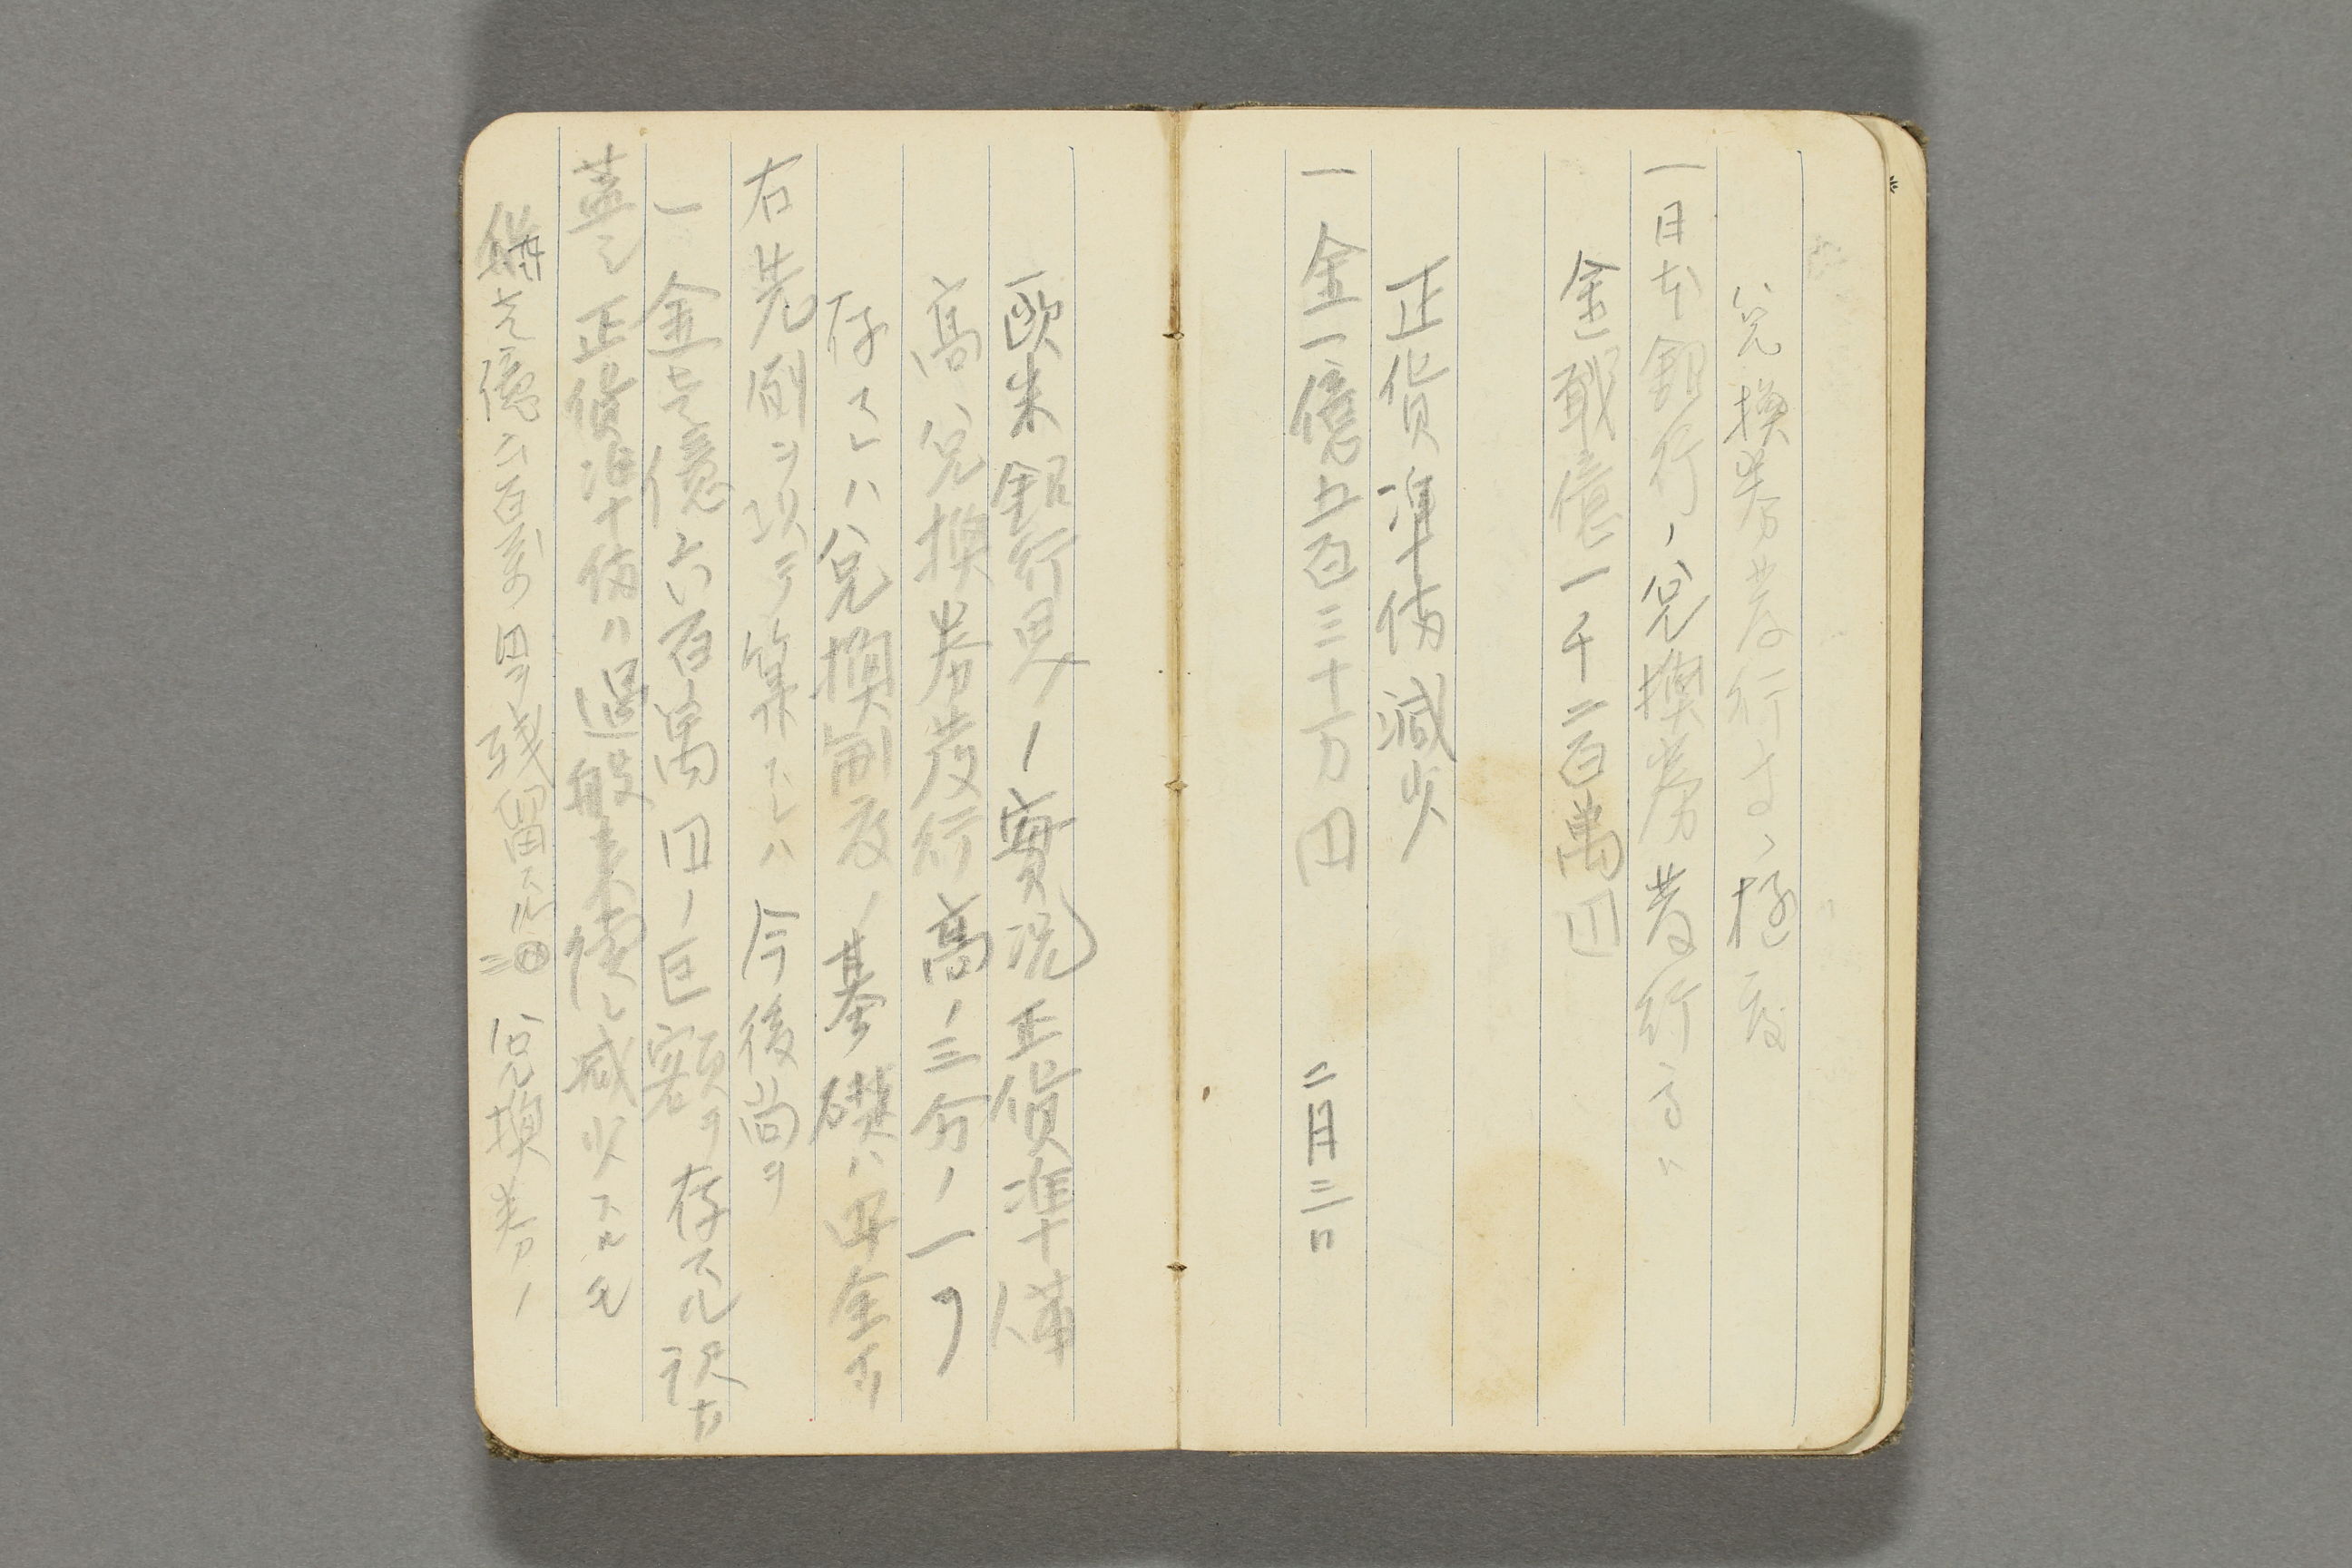 兌換券発行高ノ極度
一日本銀行ノ兌換券発行高ハ
金貳億一千二百萬円
正貨準備減少
一金一億五百三十万円 二月三日
欧米銀行界ノ實况正貨準備
高兌換券發行高ノ三分ノ一ヲ
存スレハ兌換制度ノ基礎ハ安全ナリ
右先例ヲ以テ算スレハ今後尚ヲ
一金壱億六百萬円ノ巨額ヲ存スル訳ナ
蓋シ正貨準備ハ過般来漸ク減少スルモ
猶壱億六百萬円ヲ残留スル 兌換券ノ